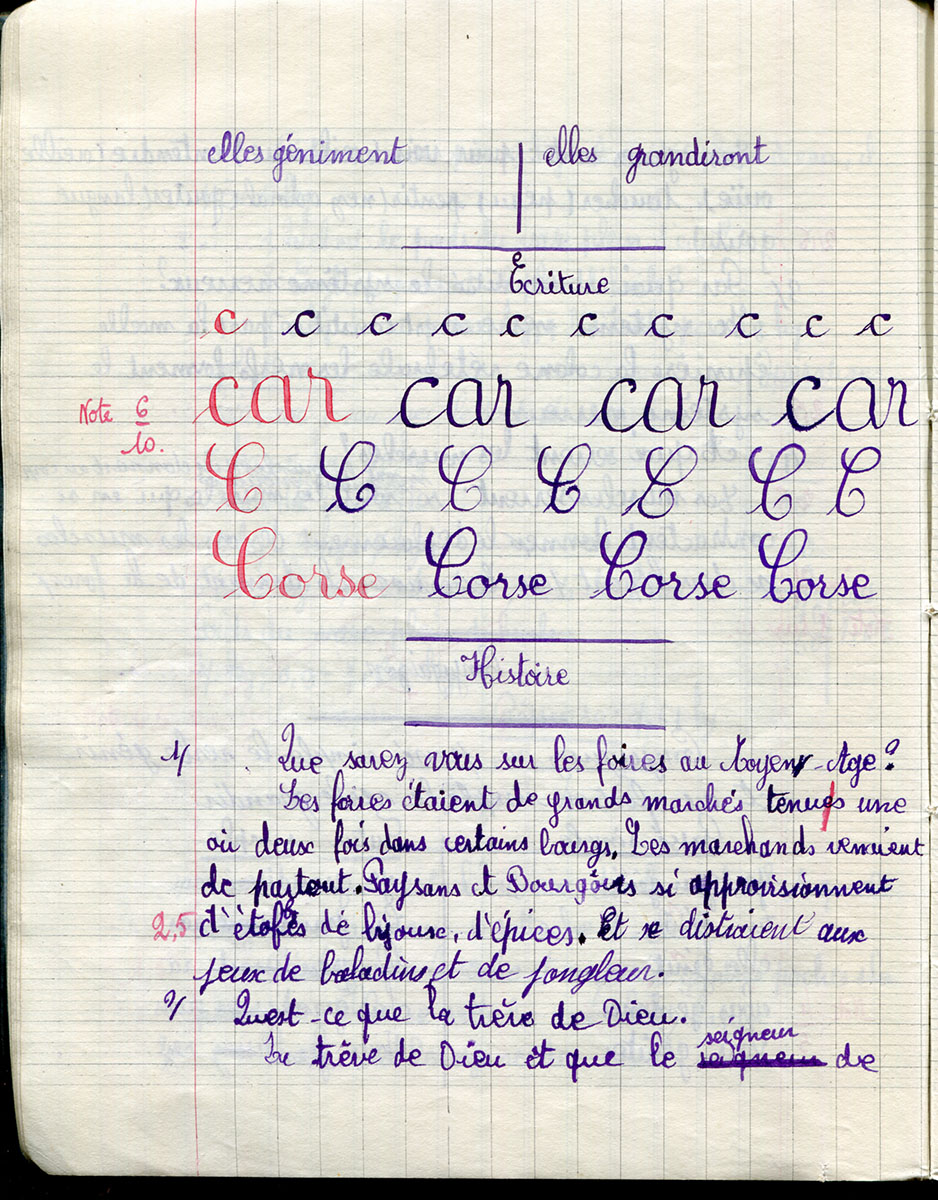 elles géniment elles grandiront
Écriture
c c c c c c c c c c
car car car car
Note 6/10.
C C C C C C C
Corse Corse Corse Corse
Histoire
1/ Que savez vous sur les foires au Moyen-Age?
Les foires étaient de grands marchés tenus une
où deux fois dans certains bourgs. Les marchands venaient
de partout. Paysans et Bourgois si approvisionnent
2,5 d'étoffes dé bijoux, d'épices. Et se distraient aux
jeux de baladins et de jongleur.
2/ Quest-ce que la trève de Dieu.
La trêve de Dieu et que le seigneur de